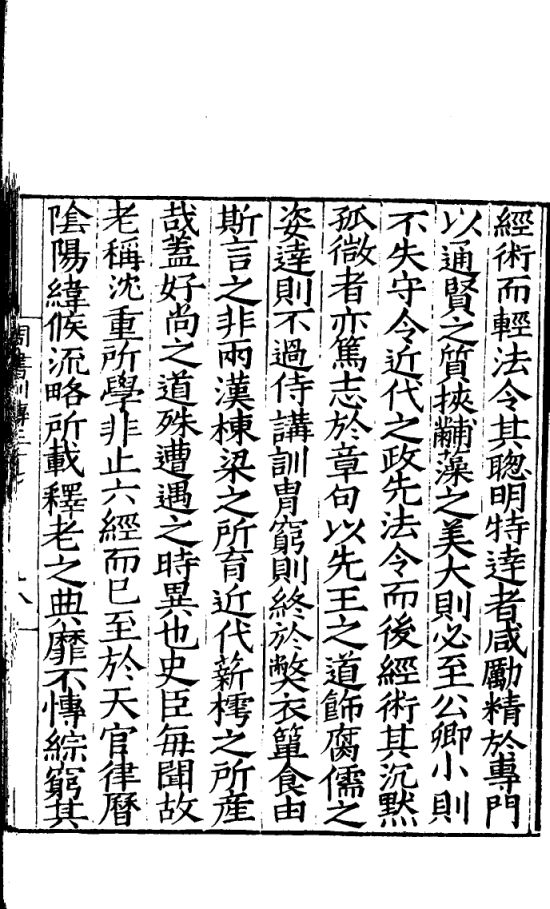 經術而輕法令其聰明特逹者咸勵精於專門
以通賢之質挾黼藻之美大則必至公卿小則
不失守令近代之政先法令而後經術其沉黙
孤微者亦篤志於章句以先王之道飾腐儒之
姿逹則不過侍講訓胄窮則終於弊衣簞食由
斯言之非兩漢棟梁之所育近代薪樗之所產
哉蓋好尚之道殊遭遇之時異也史臣每聞故
老稱沈重所學非止六經而已至於天官律曆
陰陽緯候流略所載釋老之典靡不慱綜窮其